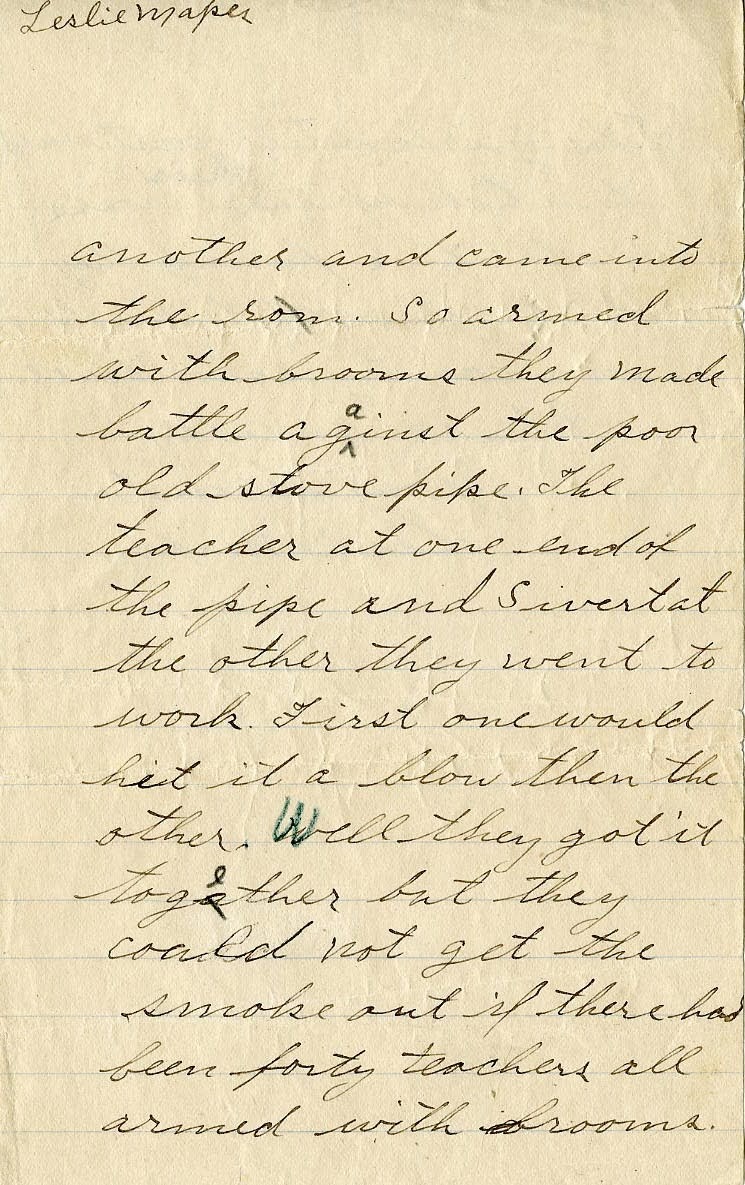 Leslie Mapes
another and came into
the rom. So armed
with brooms they made
battle against the poor
old stove pipe. The
teacher at one end of
the pipe and Sivert at
the other they went to
work. First one would
hit it a blow then the
other. Well they got it
together but they
could not get the
smoke out if there had
been forty teachers all
armed with brooms.